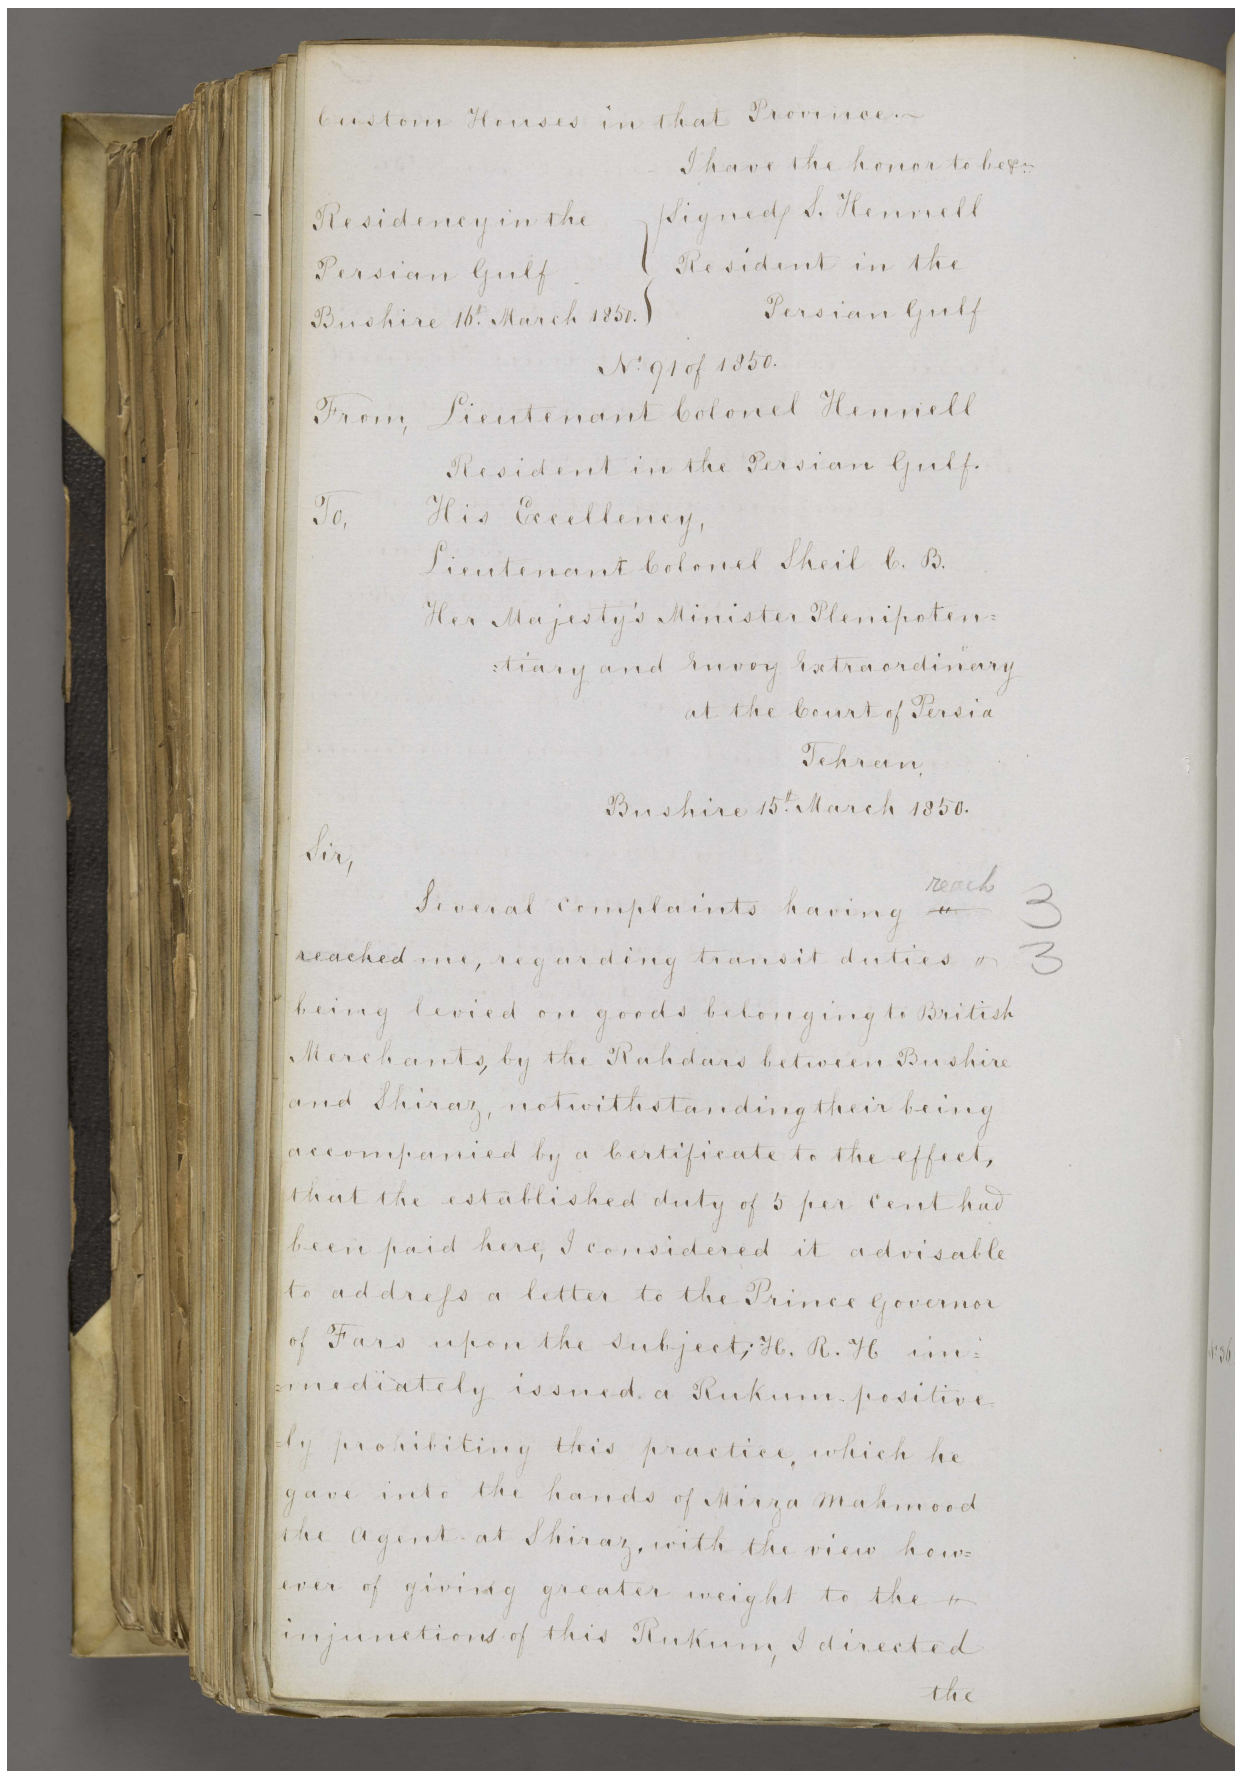 Custom Houses in that Province.~
I have the honor to be &c:
Residency in the
Persian Gulf
Bushire 16th March 1850.
/Signed/ S. Hennell
Resident in the
Persian Gulf
No. 91 of 1850.
From, Lieutenant Colonel Hennell
Resident in the Persian Gulf.
To, His Excellency,
Lieutenant Colonel Sheil C. B.
Her Majesty's Minister Plenipoten=
:tiary and Envoy Extraordinary
at the Court of Persia
Tehran,
Bushire 15th March 1850.
Sir,
reach
Several complaints having "
3
reached me, regarding transit duties "
3
being levied on goods belonging to British
Merchants, by the Rahdars between Bushire
and Shiraz, notwithstanding their being
accompanied by a Certificate to the effect,
that the established duty of 5 per Cent had
been paid here, I considered it advisable
to address a letter to the Prince Governor
of Fars upon the subject; H. R. H im=
=mediately issued a Rukum positive
=ly prohibiting this practice, which he
gave into the hands of Mirza Mahmood
the Agent at Shiraz, with the view how=
ever of giving greater weight to the "
injunctions of this Rukum, I directed
the
No 36